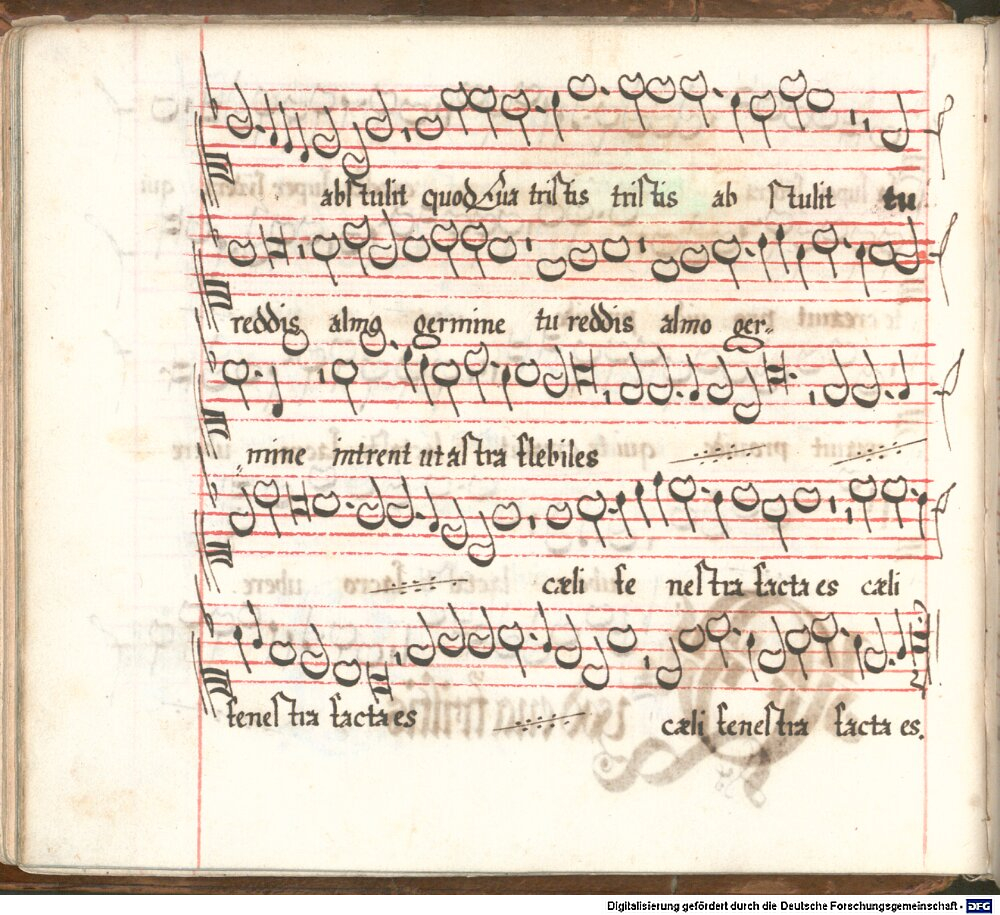 abstulit quod Eua tristis tristis ab stulit tu
reddis almo germine tu reddis almo ger-
mine intrent ut astra flebiles
cæli fe nestra facta es cæli
fenestra facta es cæli fenestra facta es.
Digitalisierung gefördert durch die Deutsche Forschungsgemeinschaft - DFG